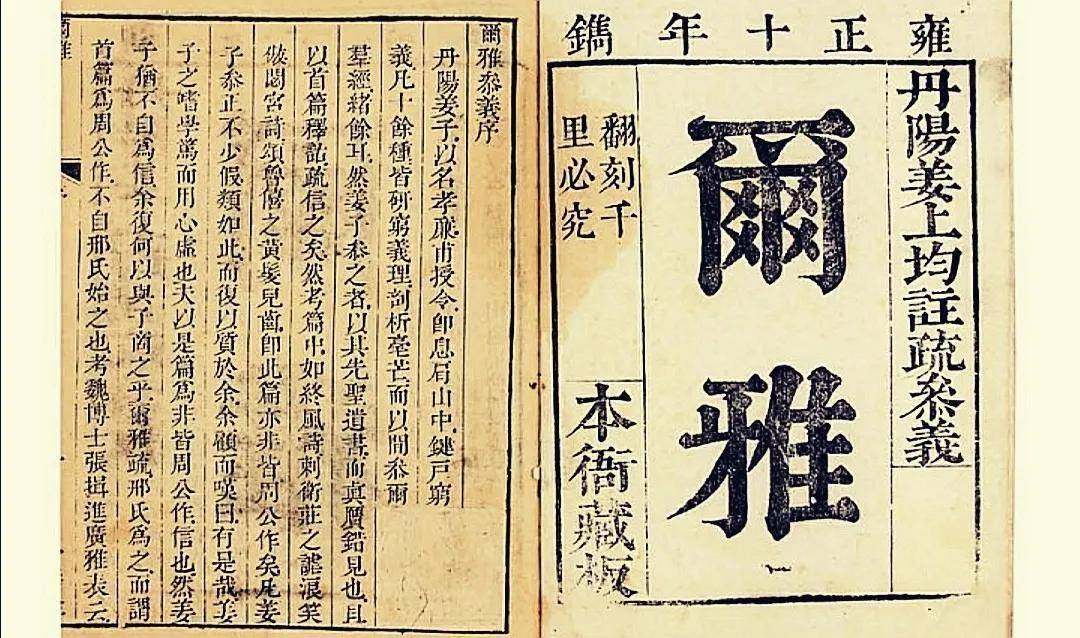 雍正十年鐫
丹陽姜上均註疏叅義
爾雅
一
翻刻千
里必究
本衙藏板
爾雅叅義序
丹陽姜子以名孝廉甫授令即息肩山中鍵戸窮
義凡十餘種皆研窮義理剖析毫芒而以間叅爾
羣經緒餘耳然姜子叅之者以其先聖遺書而真贋錯見也且
以首篇釋詁疏信之矣然考篇中如終風詩刺衛莊之謔浪笑
傲閟宮詩頌魯僖之黃髮兒齒即此篇亦非皆周公作矣凡姜
子叅正不少假類如此而復以質於余余顧而嘆曰有是哉姜
子之嗜學篤而用心虛也夫以是篇爲非皆周公作信也然姜
子猶不自爲信余復何以與子商之乎爾雅疏邢氏爲之而謂
首篇爲周公作不自邢氏始之也考魏博士張揖進廣雅表云
爾雅